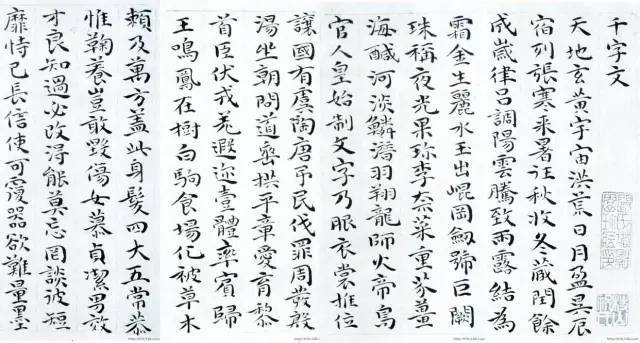 千字文
天地玄黃宇宙洪荒日月盈昃辰
宿列張寒来暑往秋收冬藏閏餘
成歲律呂調陽雲騰致雨露結為
霜金生麗水玉出崐岡劔號巨闕
珠稱夜光果珍李柰菜重芥薑
海醎河淡鱗潛羽翔龍師火帝鳥
官人皇始制文字乃服衣裳推位
讓國有虞陶唐弔民伐罪周發殷
湯坐朝問道垂拱平章愛育黎
首臣伏戎羌遐迩壹體率賓歸
王鳴鳳在樹白駒食場化被草木
賴及萬方蓋此身髮四大五常恭
惟鞠養豈敢毀傷女慕貞潔男效
才良知過必改得能莫忘罔談彼短
靡恃己長信使可覆器欲難量墨